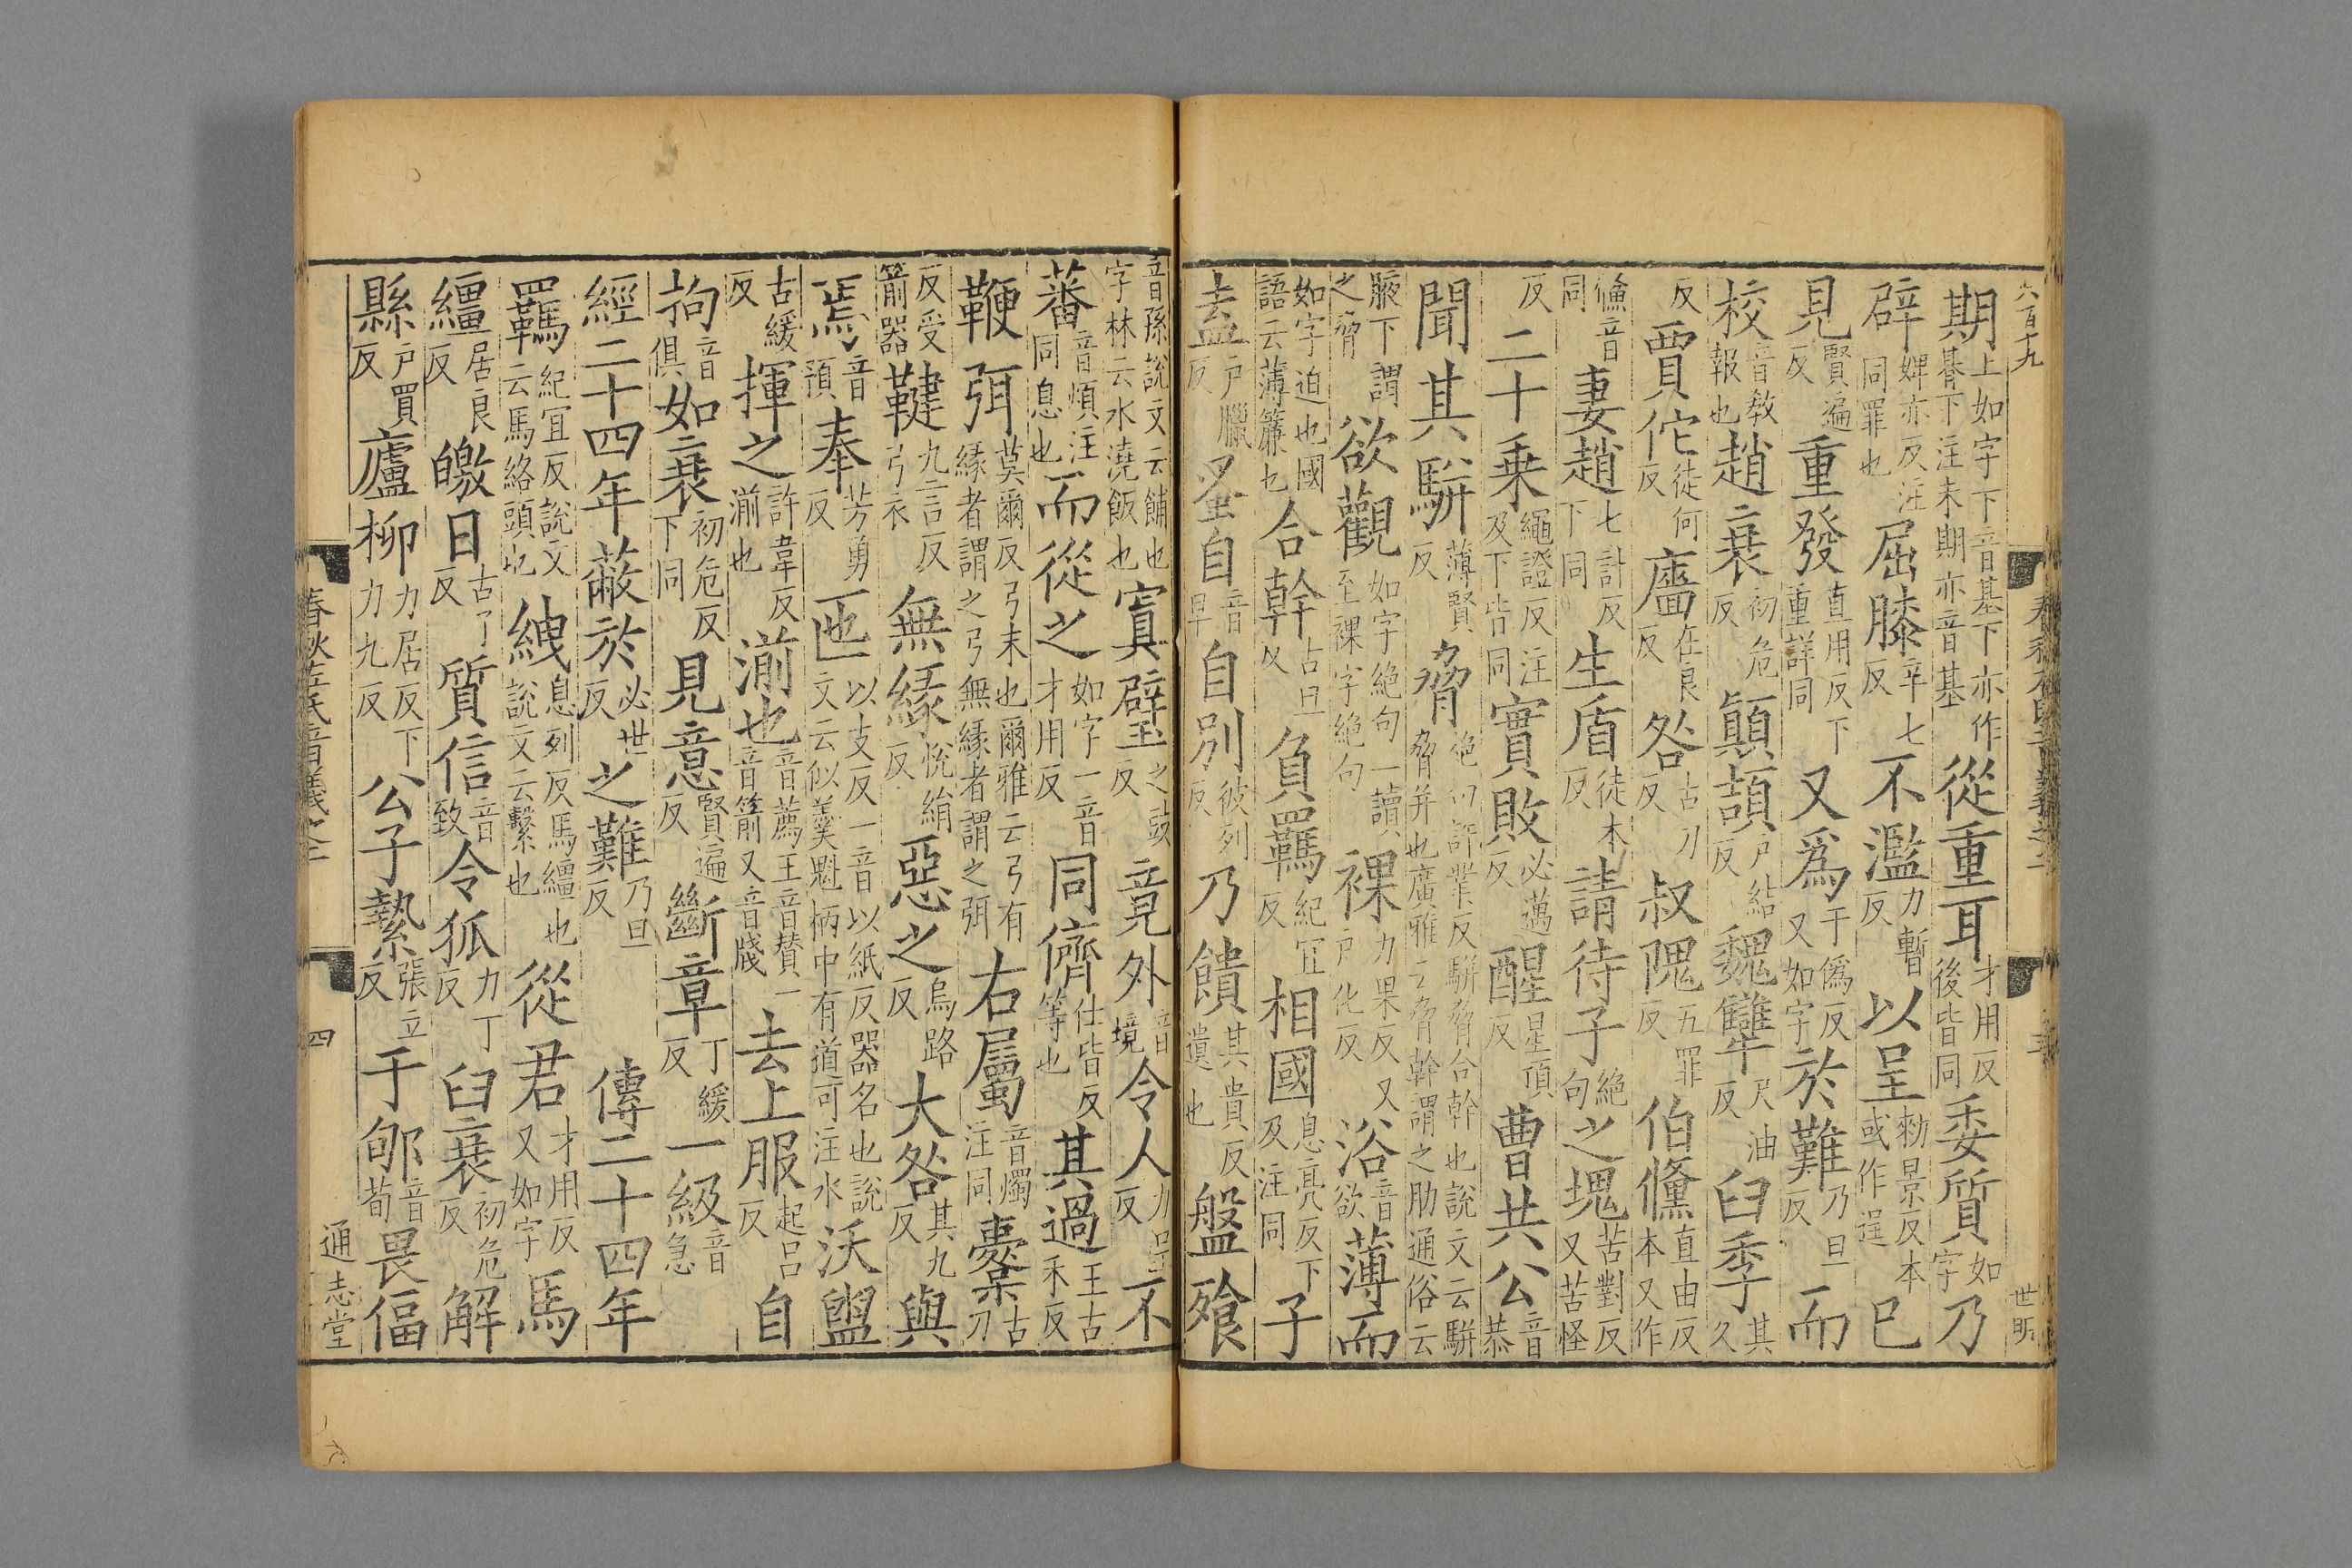 六百十九
世明
期上如字下音基下亦作朞下注未期亦音基從重耳才用反後皆同委質如字乃
辟婢亦反注同罪也屈膝辛七反不濫力暫反以呈勑景反本或作逞已
見賢遍反重發直用反下重詳同又爲于僞反又如字於難乃旦反而
校音教報也趙衰初危反顛頡户結反魏犨尺油反臼季其久
反賈佗徒何反廧在良反咎古刀反叔隗五罪反伯儵直由反本又作
儵音同妻趙七計反下同生盾徒本反請待子絶句之塊苦對反又苦怪
反二十乗繩證反注及下皆同實敗必邁反醒星頂反曹共公音恭
聞其駢薄賢反脅絶句許業反駢脅合幹也說文云駢脅并也廣雅云脅幹謂之肋通俗云
腋下謂之脅欲觀如字絶句一讀至裸字絶句裸力果反又户化反浴音欲薄而
如字迫也國語云薄簾也合幹古旦反負羈紀宜反相國息亮反下及注同子
盍户臘反蚤自音早自別彼列反乃饋其貴反遺也盤飱
音孫說文云餔也字林云水澆飯也寘璧之豉反竟外音境令人力呈反不
蕃音煩注同息也而從之如字一音才用反同儕仕皆反等也其過王古禾反
鞭弭莫爾反弓末也爾雅云弓有緣者謂之弓無緣者謂之弭右屬音燭注同櫜古刀
反受箭器鞬九言反弓衣無緣悅絹反惡之烏路反大咎其九反與
焉音預奉芳勇反匜以支反一音以紙反器名也說文云似羹魁柄中有道可注水沃盥
古緩反揮之許韋反湔也湔也音薦王音贊一音箭又音牋去上服起呂反自
拘音俱如衰初危反下同見意賢遍反斷章丁緩反一級音急
經二十四年蔽於必世反之難乃旦反傳二十四年
羈紀宜反說文云馬絡頭也紲息列反馬繮也說文云繫也從君才用反又如字馬
繮居良反皦日古了反質信音致令狐力丁反臼衰初危反解
縣户買反廬柳力居反下力九反公子縶張立反于郇音荀畏偪
春秋左氏音義之二
四
通志堂